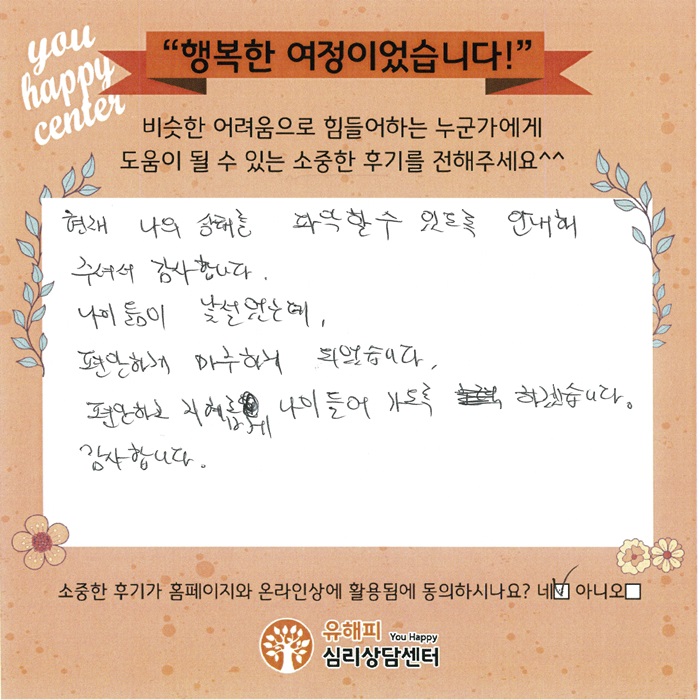 you
happy
center
“행복한 여정이었습니다!”
비슷한 어려움으로 힘들어하는 누군가에게
도움이 될 수 있는 소중한 후기를 전해주세요^^
현재 나의 상태를 파악할 수 있도록 안내해
주셔서 감사합니다.
나이듦이 낯설었는데,
편안하게 마주하게 되었습니다.
편안하고 지혜롭게 나이들어 가도록 하겠습니다.
감사합니다.
소중한 후기가 홈페이지와 온라인상에 활용됨에 동의하시나요? 네☑ 아니오□
유해피 You Happy
심리상담센터